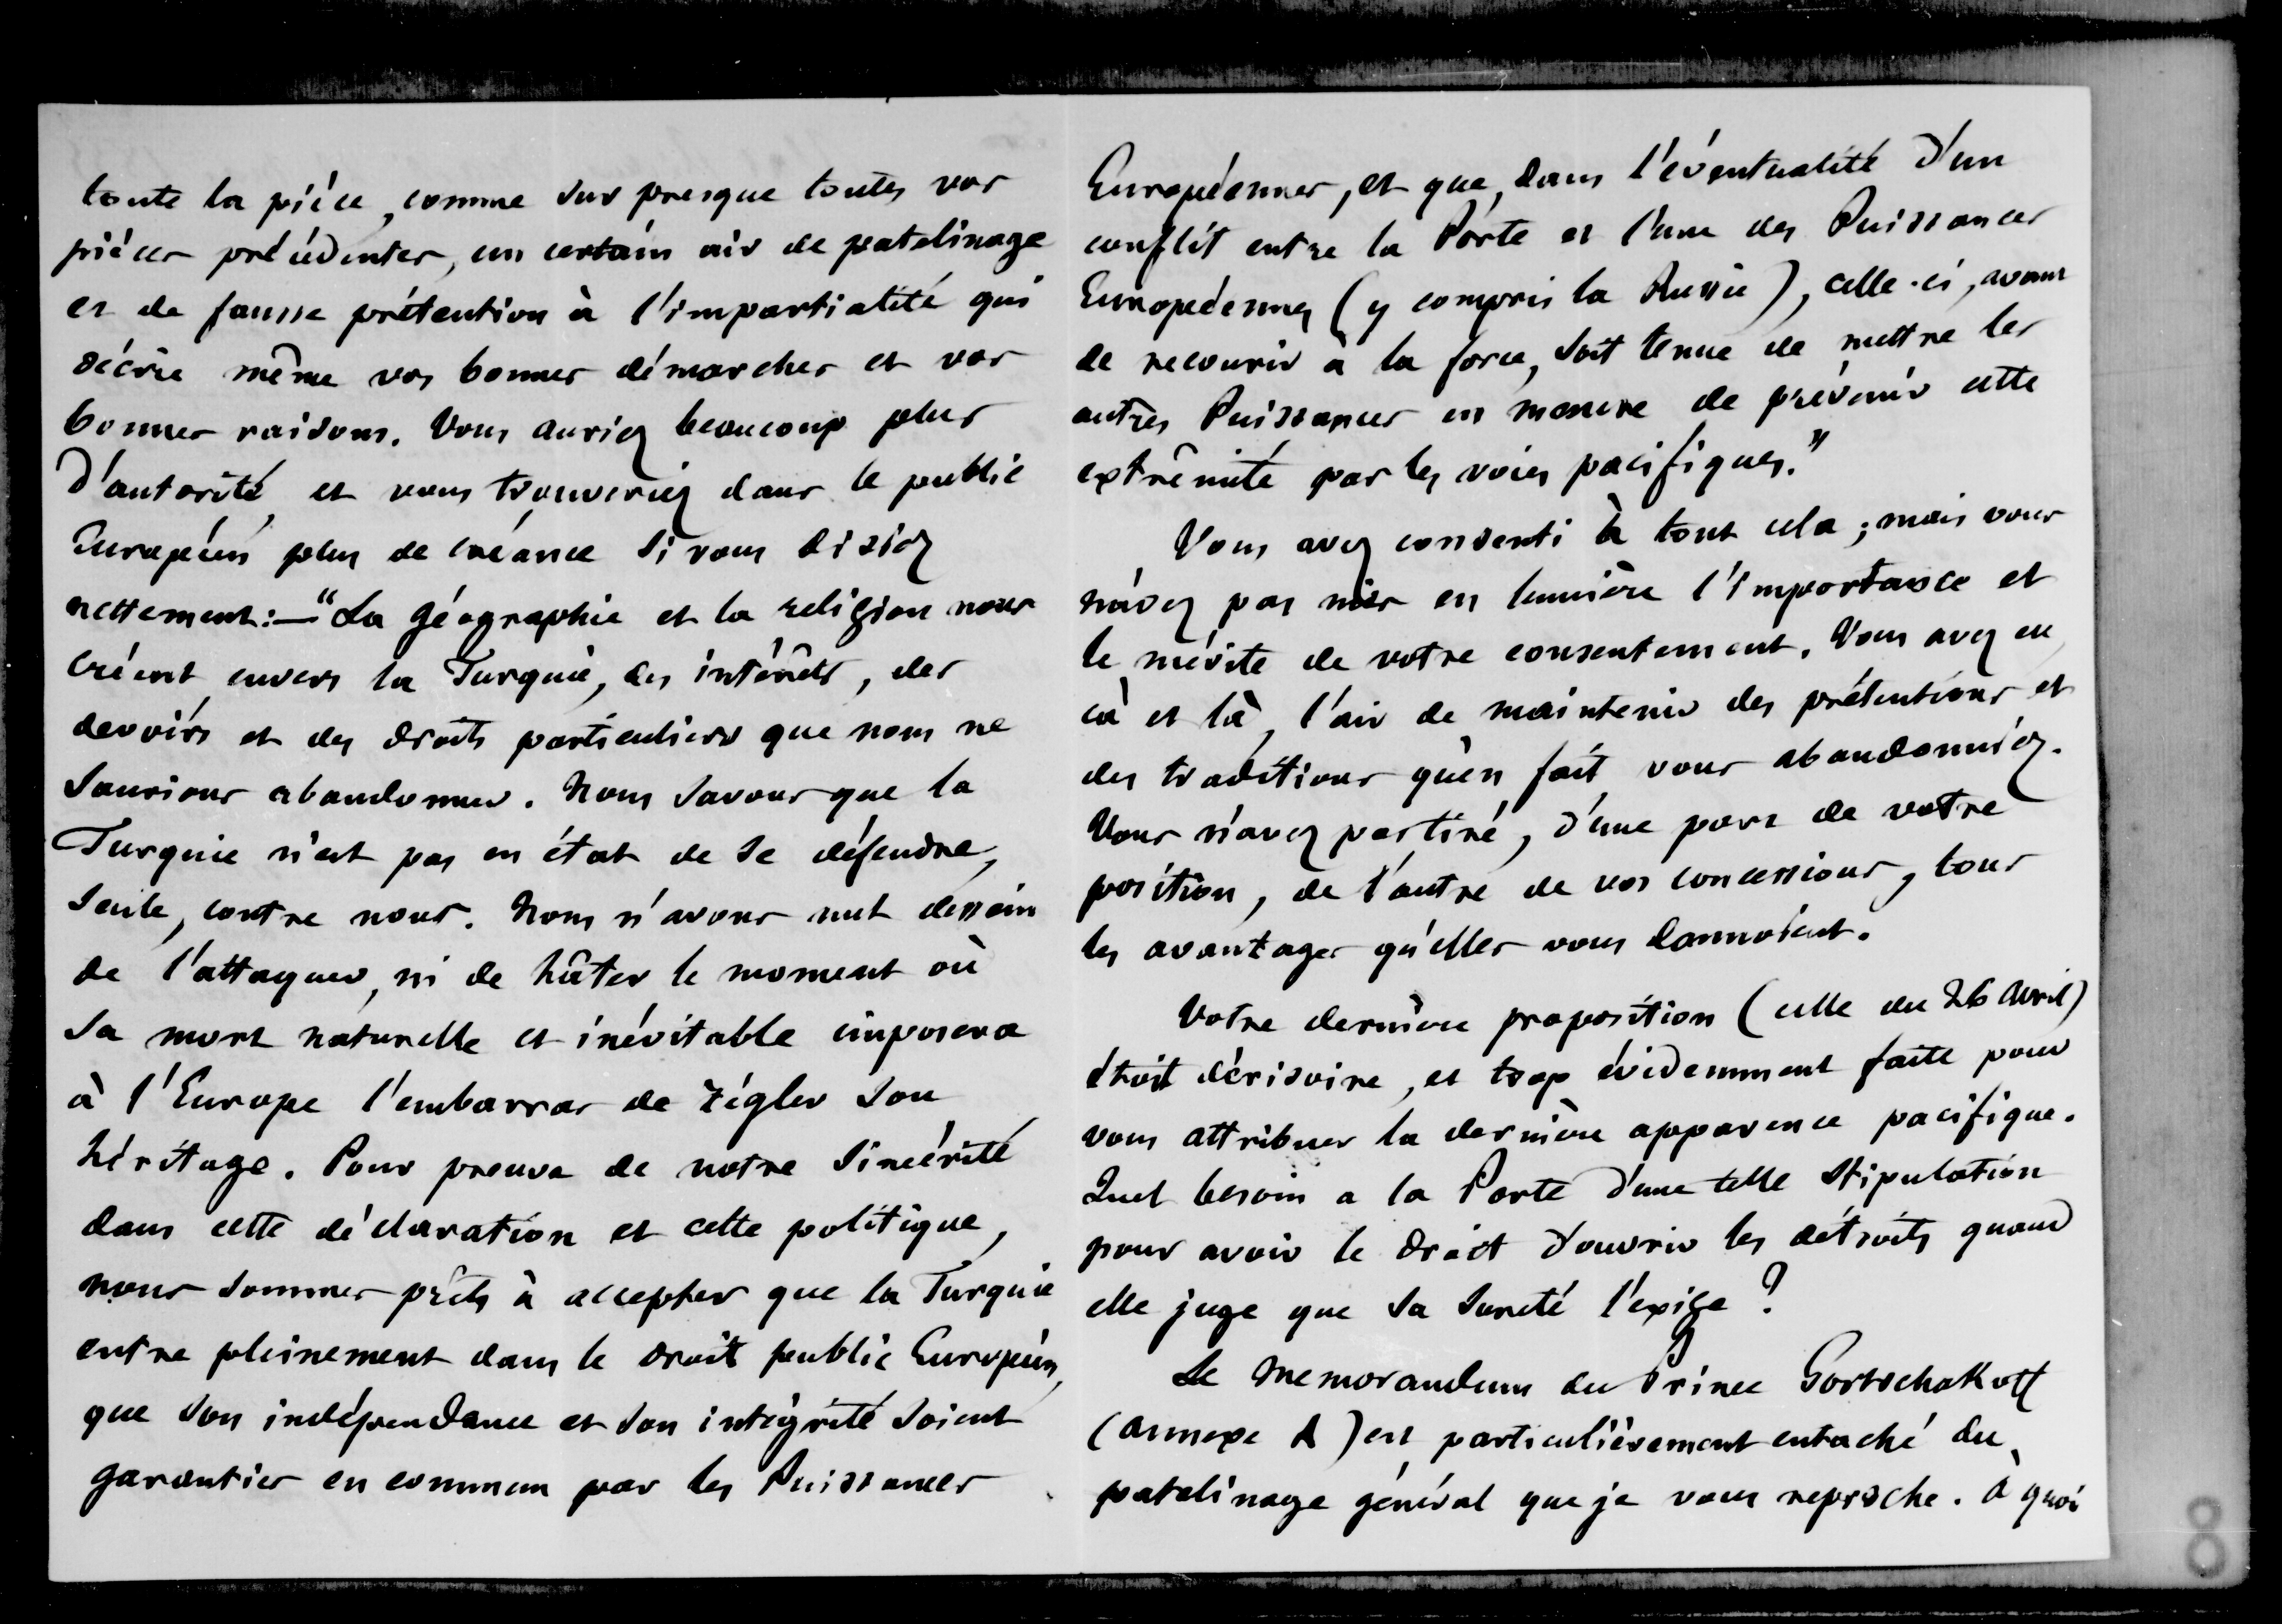 toute la pièce, comme sur presque toutes vos
pièces précédentes, un certain air de patelinage
et de fausse prétention à l'impartialité qui
décrie même vos bonnes démarches et vos
bonnes raisons. Vous auriez beaucoup plus
d'autorité, et vous trouveriez dans le public
Européen plus de créance si vous disiez
nettement:—"La géographie et la religion nous
créent envers la Turquie, des intérêts, des
devoirs et des droits particuliers que nous ne
saurions abandonner. Nous savons que la
Turquie n'est pas en état de se défendre,
seule, contre nous. Nous n'avons nul dessein
de l'attaquer, ni de hâter le moment où
sa mort naturelle et inévitable imposera
à l'Europe l'embarras de régler son
héritage. Pour preuve de notre sincérité
dans cette déclaration et cette politique,
nous sommes prêts à accepter que la Turquie
entre pleinement dans le droit public Européen,
que son indépendance et son intégrité soient
garanties en commun par les Puissances
Européennes, et que, dans l'éventualité d'un
conflit entre la Porte et l'une des Puissances
Européennes (y compris la Russie), celle-ci, avant
de recourir à la force, soit tenue de mettre les
autres Puissances en mesure de prévenir cette
extrêmité par les voies pacifiques."
Vous avez consenti à tout cela; mais vous
n'avez pas mis en lumière l'importance et
le mérite de votre consentement. Vous avez eu,
çà et là, l'air de maintenir des prétentions et
des traditions qu'en fait vous abandonniez.
Vous n'avez pas tiré, d'une part de votre
position, de l'autre de vos concessions, tous
les avantages qu'elles vous donnaient.
Votre dernière proposition (celle du 26 Avril)
était dérisoire, et trop évidemment faite pour
vous attribuer la dernière apparence pacifique.
Quel besoin a la Porte d'une telle stipulation
pour avoir le droit d'ouvrir les détroits quand
elle juge que sa sureté l'exige?
Le Memorandum du Prince Gortschakoff
(annexe A) est particulièrement entaché du
patelinage général que je vous reproche. à quoi
8